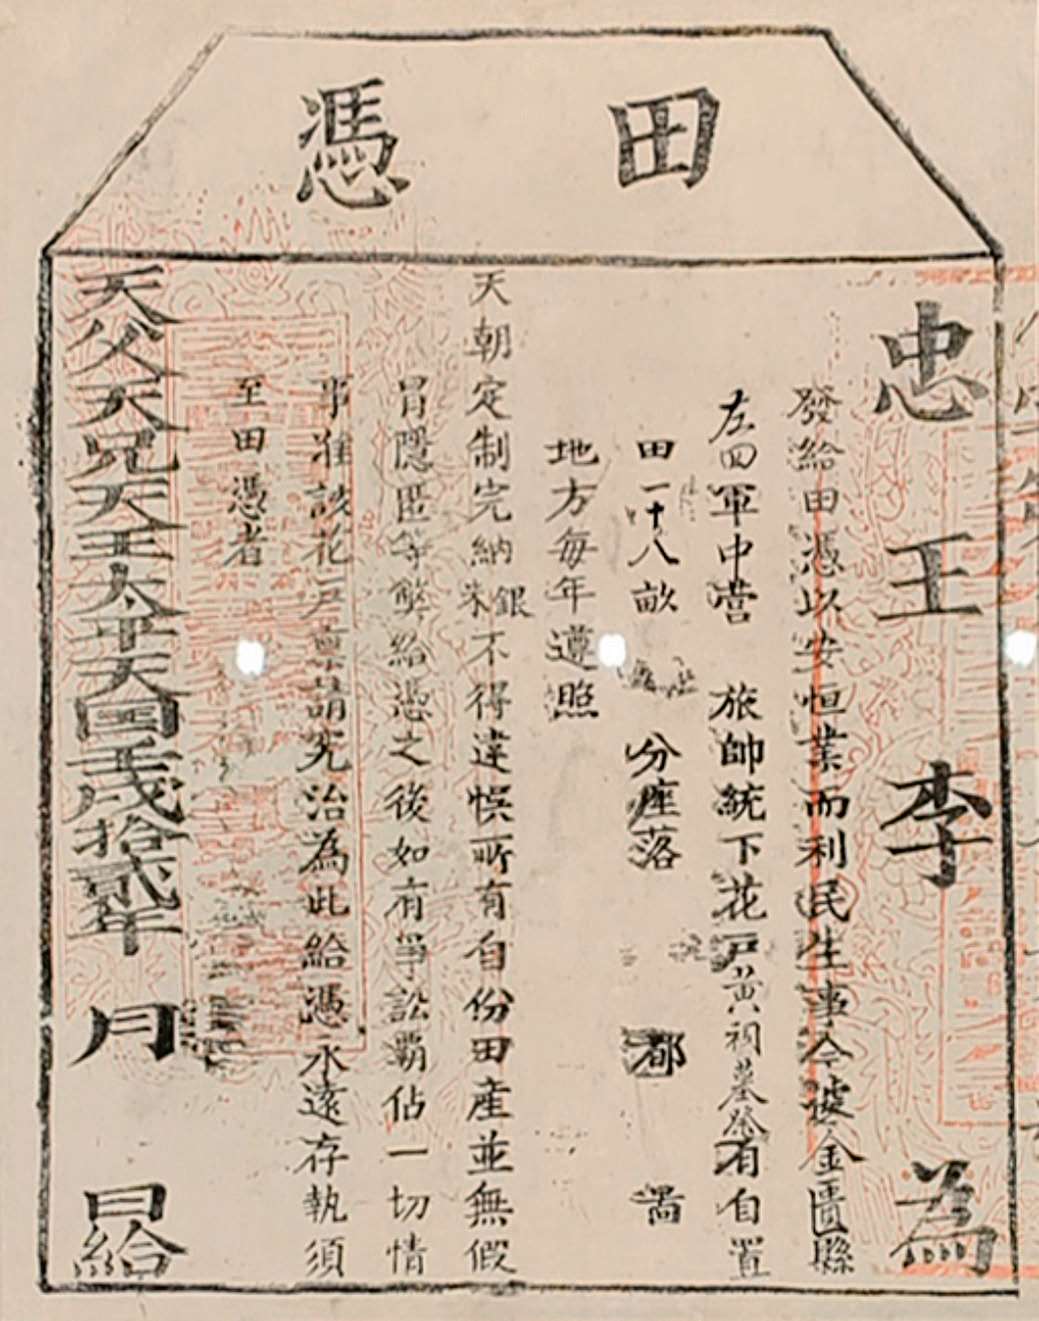 田憑
忠王李為
發給田憑以安恒業而利民生事今據金匱縣
左四軍中營 旅帥統下花戶黃祠墓祭有自置
田一十八畝 分座落 都 啚
地方每年遵照
天朝定制完納銀米不得違悞所有自份田產並無假
冒隱匿等弊給憑之後如有爭訟霸佔一切情
事准該花戶稟請究治為此給憑永遠存執須
至田憑者
天父天兄天王太平天囯壬戌拾貳年 月 日給